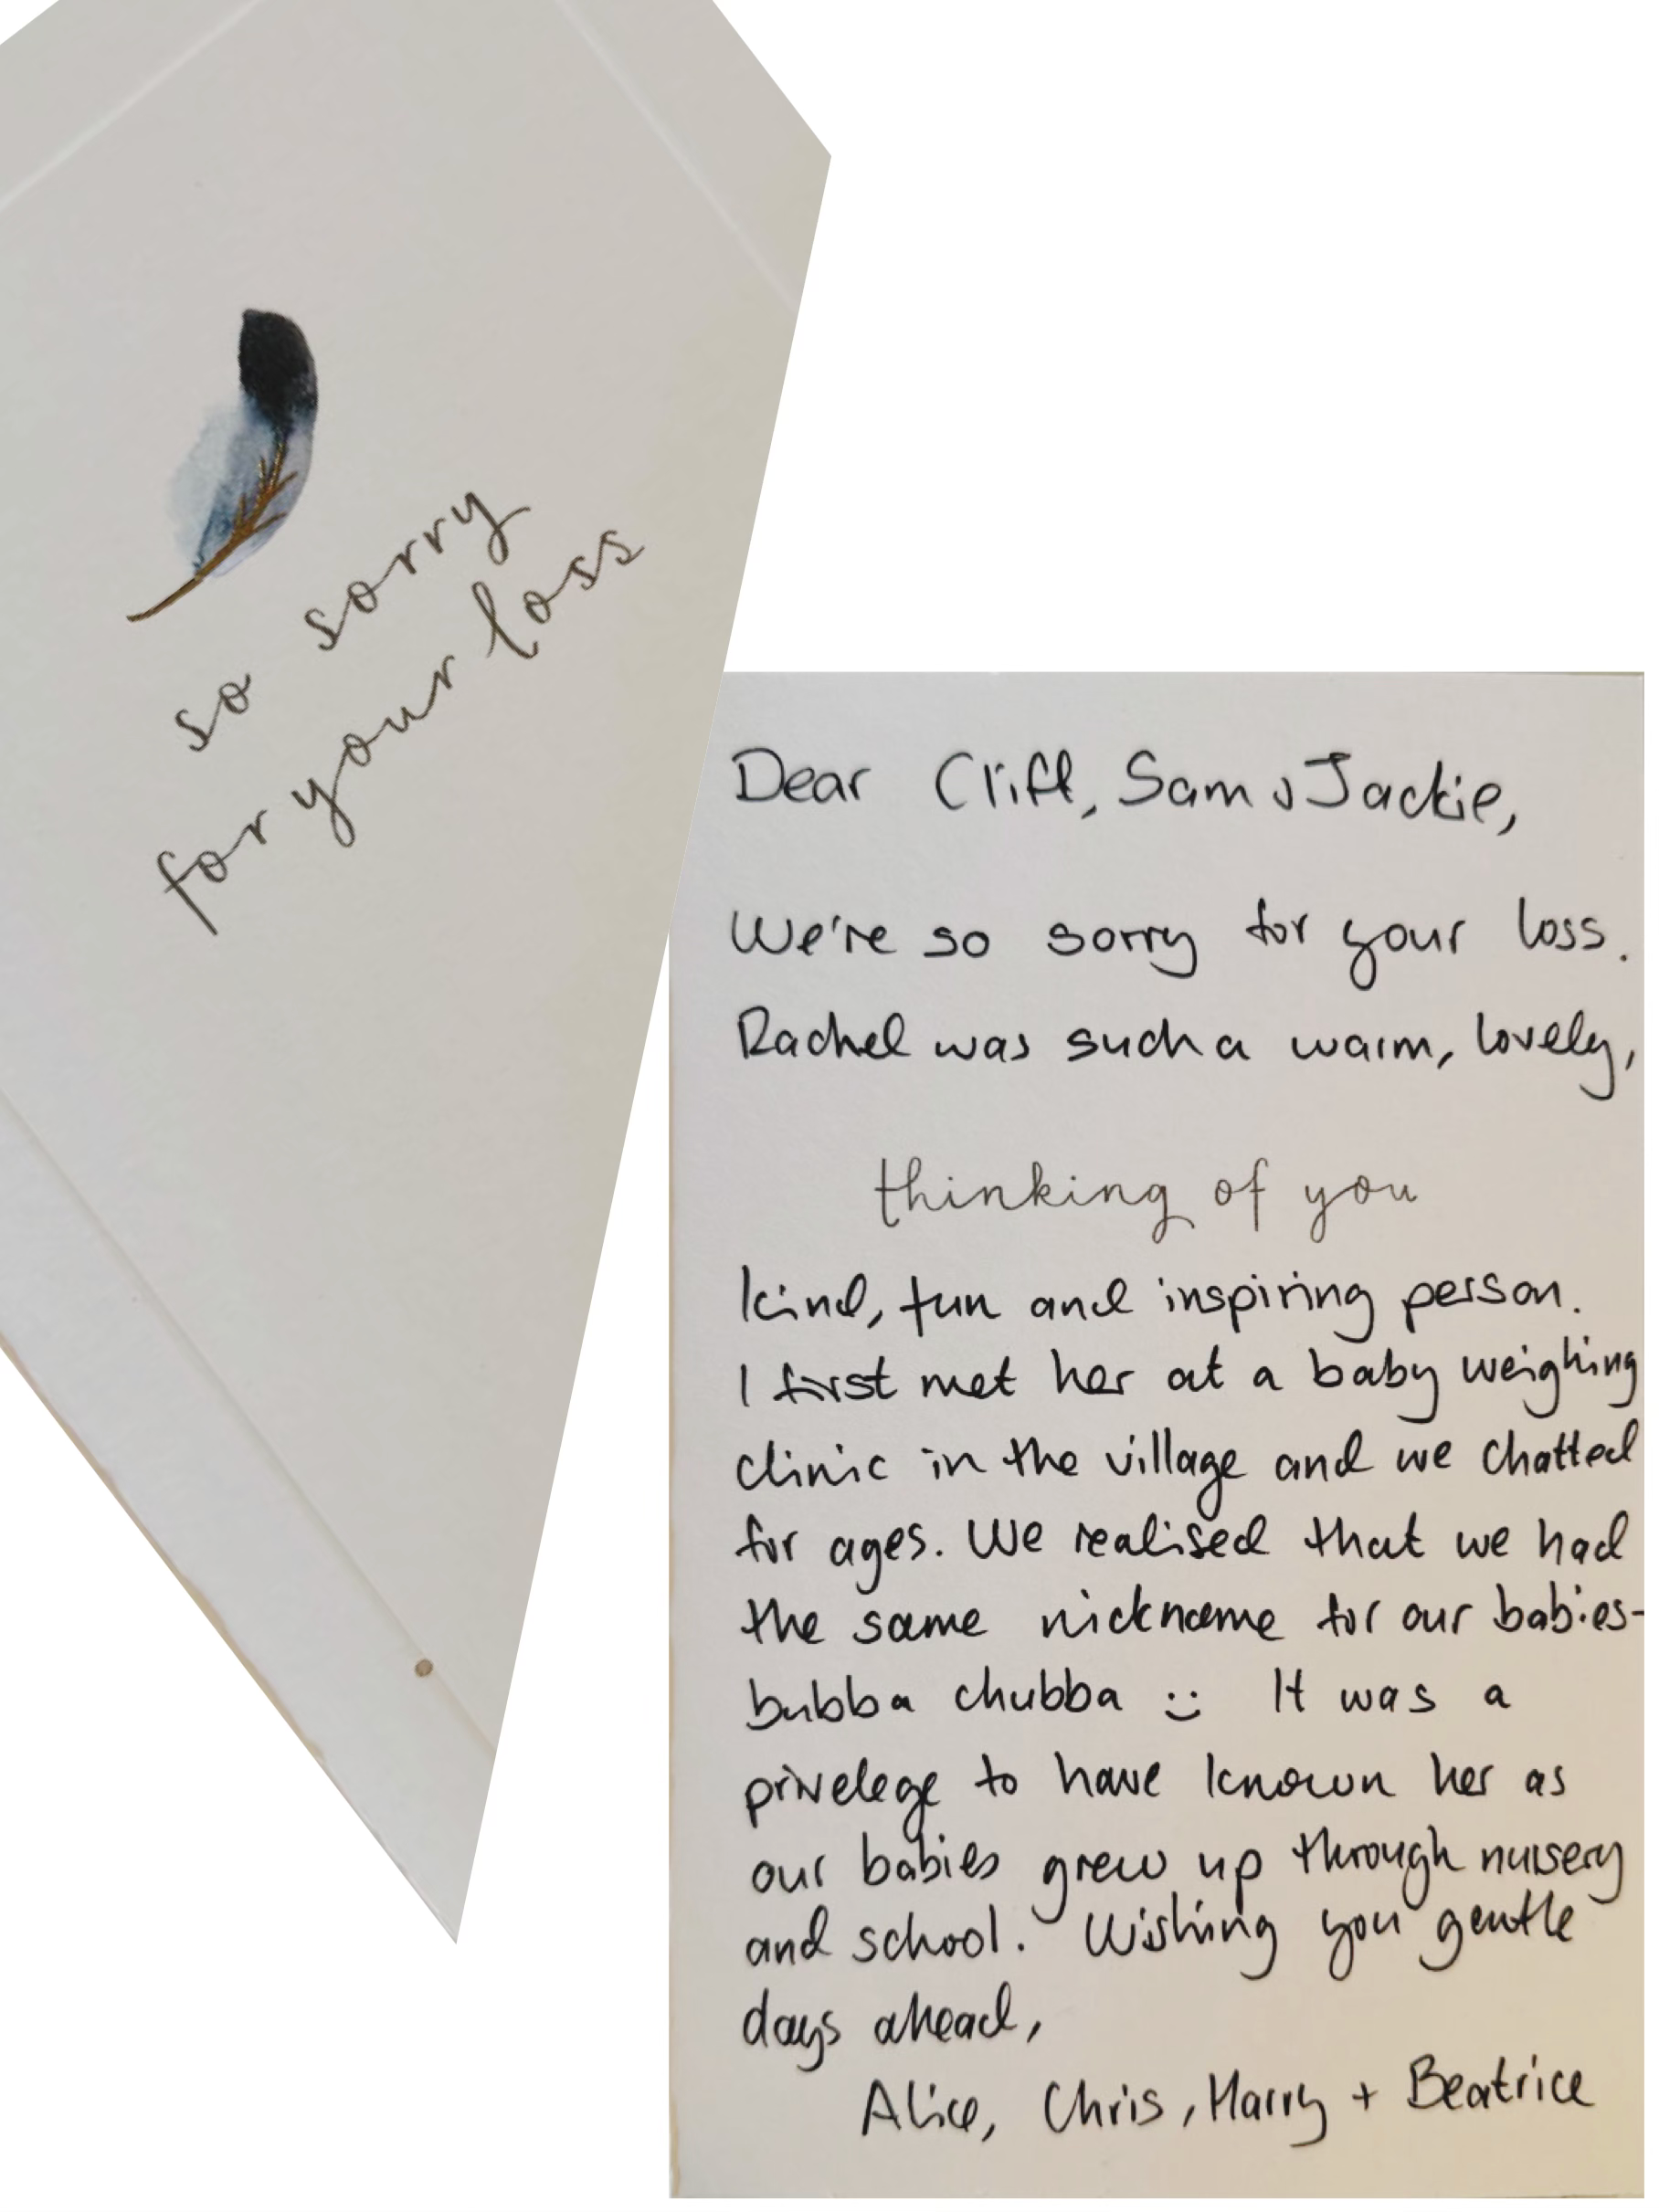 so sorry
for your loss
Dear Cliff, Sam & Jackie,
We're so sorry for your loss.
Rachel was such a warm, lovely,
thinking of you
kind, fun and inspiring person.
I first met her at a baby weighing
clinic in the village and we chatted
for ages. We realised that we had
the same nickname for our babies-
bubba chubba :) It was a
privelege to have known her as
our babies grew up through nursery
and school. Wishing you gentle
days ahead,
Alice, Chris, Harry + Beatrice